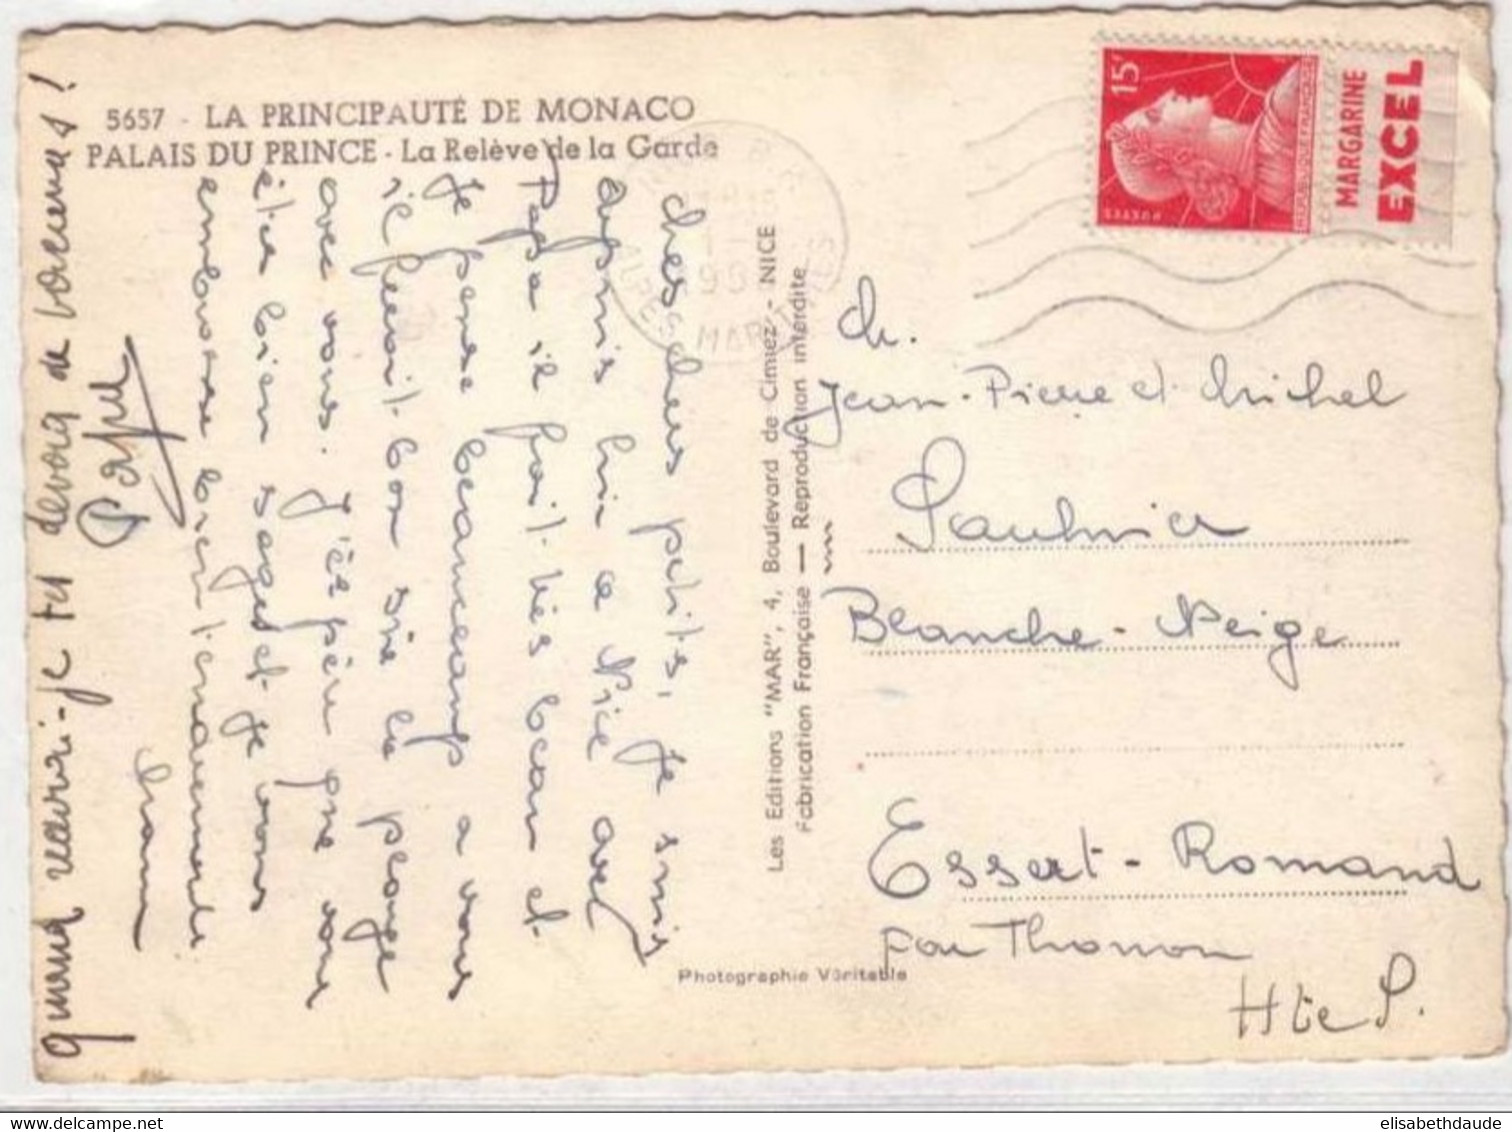 5657 - LA PRINCIPAUTÉ DE MONACO
PALAIS DU PRINCE - La Relève de la Garde
Mes chers petits, je suis
depuis hier a Nice avec
Papa il fait très beau et
je pense beaucoup a vous
il ferait bon sur la plage
avec vous. J'espère que vous
êtes bien sages et je vous
embrasse bien tendrement
Maman
quand verrai-je tu devoiq de vacances !
Les Editions "MAR", 4, Boulevard de Cimiez - NICE
Fabrication Française — Reproduction interdite
Photographie Véritable
ALPES MARITIMES
15F
POSTES
REPUBLIQUE FRANÇAISE
MARGARINE
EXCEL
M.
Jean-Pierre et Michel
Saulnier
Blanche-Neige
Essert-Romand
par Thonon
Hte S.
elisabethdaude